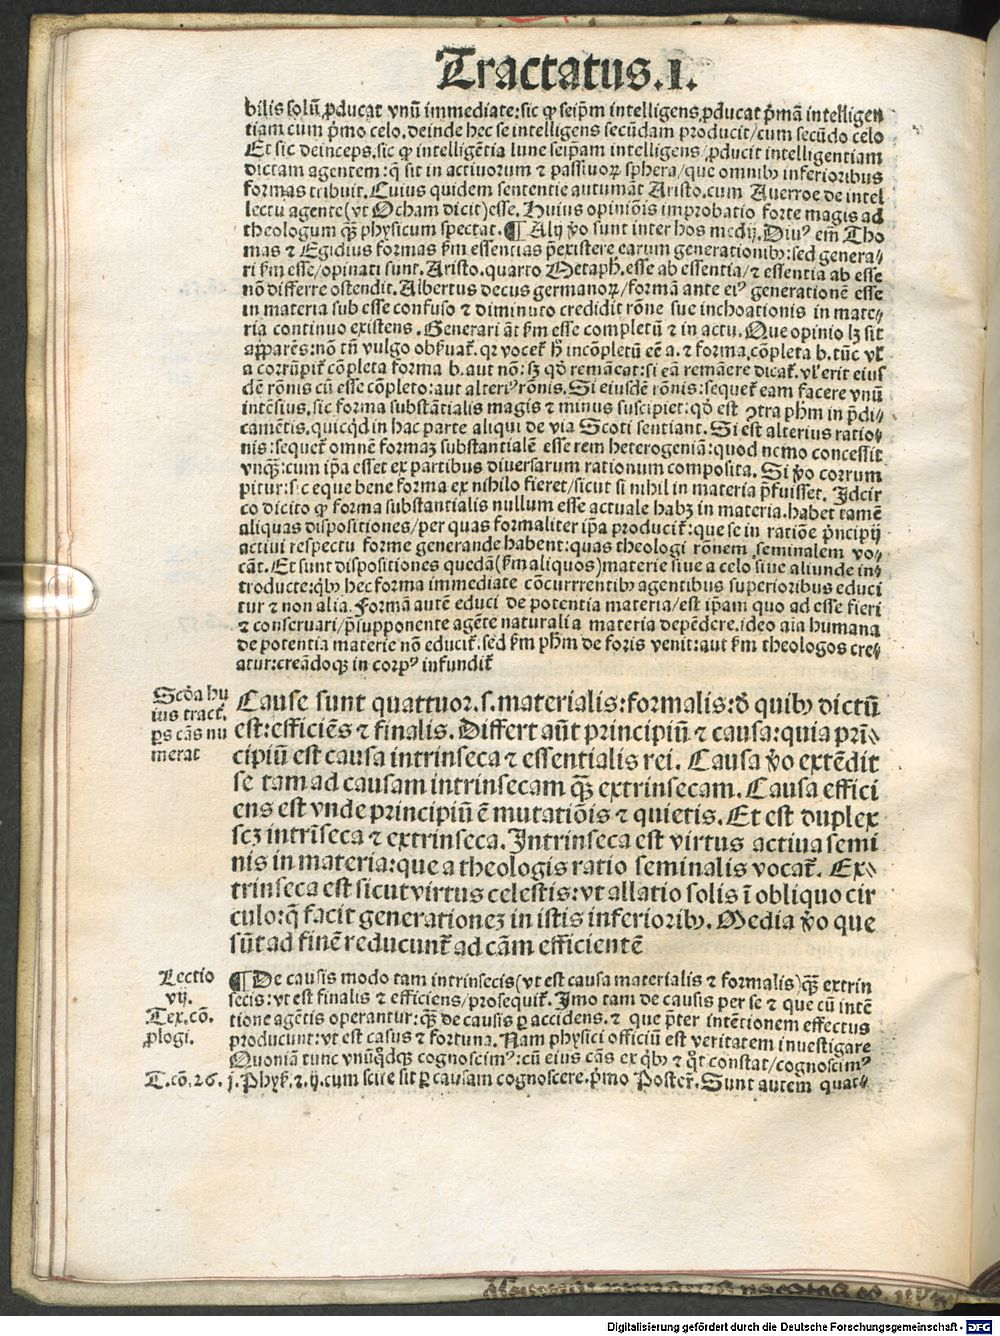 Tractatus.I.
bilis solū ꝓducat vnū immediate:sic ꝙ seip̄m intelligens ꝓducat p̄mā intelligen
tiam cum p̄mo celo.deinde hec se intelligens secūdam producit/cum secūdo celo
Et sic deinceps.sic ꝙ intelligētia lune seip̄am intelligens/ꝓducit intelligentiam
dictam agentem:q̄ sit in actiuorum ⁊ passiuoꝝ sphera/que omnibꝰ inferioribus
formas tribuit.Cuius quidem sententie autumāt Aristo.cum Auerroe de intel
lectu agente(vt Ocham dicit)esse.Huius opiniōis improbatio forte magis ad
theologum qꝫ̄ physicum spectat.¶Alij v̄o sunt inter hos medij.Diuꝰ em̄ Tho
mas ⁊ Egidius formas k̄m essentias p̄existere earum generationibꝰ:sed genera⸗
ri k̄m esse/opinati sunt.Aristo.quarto Metaph.esse ab essentia/⁊ essentia ab esse
nō differre ostendit.Albertus decus germanoꝝ/formā ante eiꝰ generationē esse
in materia sub esse confuso ⁊ diminuto credidit rōne sue inchoationis in mate⸗
ria continuo existens.Generari āt k̄m esse completū ⁊ in actu.Que opinio lꝫ sit
apparēs:nō tn̄ vulgo obſuat̄.qꝛ vocet̄ h̄ incōpletū eē a.⁊ forma cōpleta b.tūc vl̄
a corrūpit̄ cōpleta forma b.aut nō:sꝫ qd̄ remāeat:si eā remānere dicat̄.vl̄ erit eius
dē rōnis cū esse cōpleto:aut alteriꝰ rōnis.Si eiusdē rōnis:sequet̄ eam facere vnū
intēsius.sic forma substātialis magis ⁊ minus suscipiet:qd̄ est ꝯtra ph̄m in p̄di⸗
camētis.quicqͥd in hac parte aliqui de via Scoti sentiant.Si est alterius ratio⸗
nis:sequet̄ omnē formaꝫ substantialē esse rem heterogeniā:quod nemo concessit
vnqꝫ̄:cum ip̄a esset ex partibus diuersarum rationum composita.Si v̄o corrum
pitur:sic eque bene forma ex nihilo fieret/sicut si nihil in materia p̄fuisset.Idcir
co dicito ꝙ forma substantialis nullum esse actuale habꝫ in materia.habet tamē
aliquas dispositiones/per quas formaliter ip̄a producit̄:que se in ratiōe p̄ncipij
actiui respectu forme generande habent:quas theologi rōnem seminalem vo⸗
cāt.Et sunt dispositiones quedā(k̄m aliquos)materie siue a celo siue aliunde in⸗
troducte:qͥbꝰ hec forma immediate cōcurrrentibꝰ agentibus superioribus educi
tur ⁊ non alia.Formā autē educi de potentia materia/est ip̄am quo ad esse fieri
⁊ conseruari/p̄supponente agēte naturali a materia depēdere.ideo aīa humana
de potentia materie nō educit̄.sed k̄m ph̄m de foris venit:aut k̄m theologos cre⸗
atur:creādoqꝫ in corpꝰ infundit̄
Scd̄a hu
ius tract.
ꝑs cās nu
merat
Cause sunt quattuor.s.materialis:formalis:d̄ quibꝰ dictū
est:efficiēs ⁊ finalis.Differt aūt principiū ⁊ causa:quia prī⸗
cipiū est causa intrinseca ⁊ essentialis rei. Causa v̄o extēdit
se tam ad causam intrinsecam qꝫ̄ extrinsecam.Causa effici
ens est vnde principiū ē mutatiōis ⁊ quietis.Et est duplex
scꝫ intrīseca ⁊ extrinseca.Intrinseca est virtus actiua semi
nis in materia:que a theologis ratio seminalis vocat̄. Ex⸗
trinseca est sicut virtus celestis:vt allatio solis ī obliquo cir
culo:q̄ facit generationeꝫ in istis inferioribꝰ.Media v̄o que
sūt ad finē reducunt̄ ad cām efficientē
Lectio
vij.
Tex.cō.
ꝓlogi.
¶De causis modo tam intrinsecis(vt est causa materialis ⁊ formalis)qꝫ̄ extrin
secis:vt est finalis ⁊ efficiens/prosequit̄.Imo tam de causis per se ⁊ que cū intē
tione agētis operantur:qꝫ̄ de causis ꝑ accidens.⁊ que p̄ter intētionem effectus
producunt:vt est casus ⁊ fortuna.Nam physici officiū est veritatem inuestigare
Quoniā tunc vnūqͦdqꝫ cognoscimꝰ:cū eius cās ex qͥbꝰ ⁊ qͦt constat/cognoscimꝰ
T.cō.26. j.Phyſ.⁊.ij.cum scire sit ꝑ causam cognoscere.p̄mo Poster̄.Sunt autem quat⸗
Digitalisierung gefördert durch die Deutsche Forschungsgemeinschaft - DFG